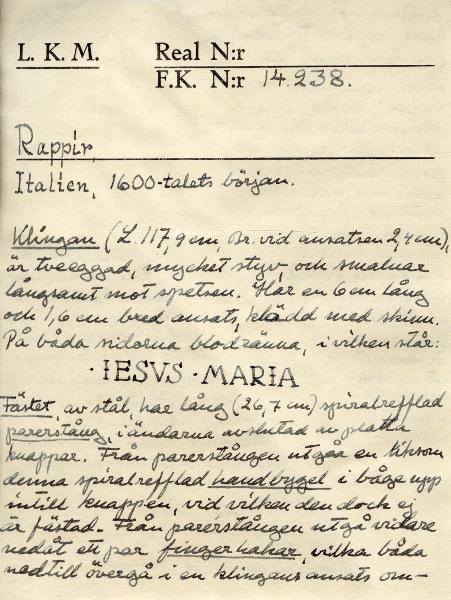 L. K. M. Real N:r
F.K. N:r 14.238.
Rappir,
Italien, 1600-talets början.
Klingan (L. 117,9 cm, Br. vid ansatsen 2,4 cm),
är tveeggad, mycket styv, och smalnar
långsamt mot spetsen. Har en 6 cm lång
och 1,6 cm bred ansats, klädd med skinn.
På båda sidorna blodränna, i vilken står:
· IESVS · MARIA
Fästet, av stål, har lång (26,7 cm) spiralrefflad
parerstång, i ändarna avslutad av platta
knappar. Från parerstången utgåa en liksom
denna spiralrefflad handbygel i båge upp
intill knappen, vid vilken den dock ej
är fästad. Från parerstången utgå vidare
nedåt ett par fingerhakar, vilka båda
nedtill övergå i en klingans ansats om-